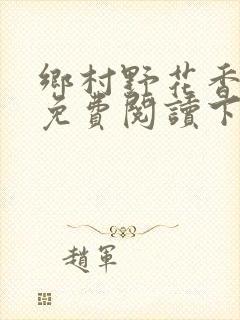 鄉村野花香
免費閱讀下
趙軍